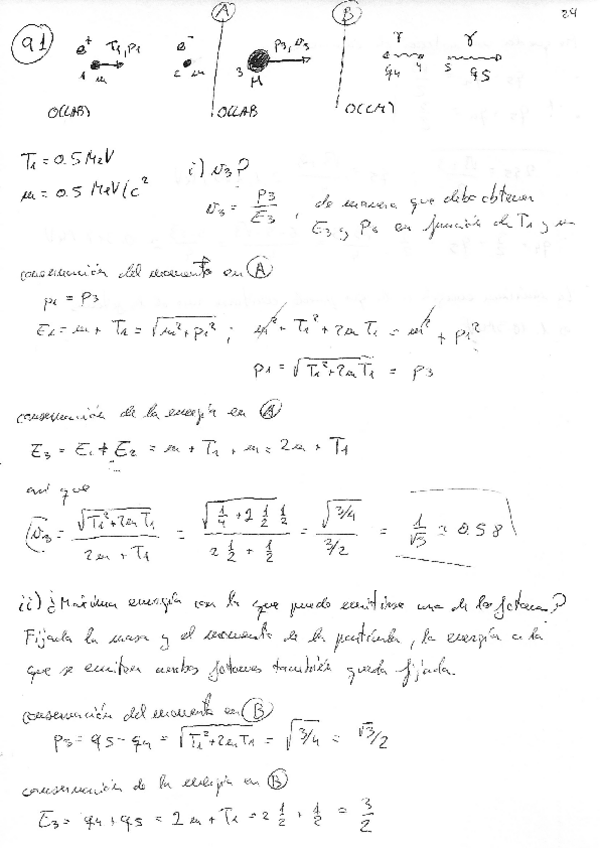 24
91
A
B
e⁺ T₁, p₁
e⁻
p₃, v₃
γ γ
1 m
2 m
3 M
q4 4 5 q5
O(LAB) O(LAB O(CM)
T₁ = 0.5 MeV
m = 0.5 MeV/c²
i) v₃?
v₃ = p₃/E₃, de manera que debo obtener
E₃ y p₃ en función de T₁ y m
conservación del momento en A
p₁ = p₃
E₁ = m + T₁ = √(m² + p₁²) ; m² + T₁² + 2mT₁ = m² + p₁²
p₁ = √(T₁² + 2mT₁) = p₃
conservación de la energía en A
E₃ = E₁ + E₂ = m + T₁ + m = 2m + T₁
así que
v₃ = √(T₁² + 2mT₁)/(2m + T₁) = √(1/4 + 2 1/2 1/2)/(2 1/2 + 1/2) = √(3/4)/(3/2) = 1/√3 ≈ 0.58
ii) ¿Máxima energía con la que puede emitirse uno de los fotones?
Fijada la masa y el momento de la partícula, la energía a la
que se emiten ambos fotones también queda fijada.
conservación del momento en B
p₃ = q5 - q4 = √(T₁² + 2mT₁) = √(3/4) = √3/2
conservación de la energía en B
E₃ = q4 + q5 = 2m + T₁ = 2 1/2 + 1/2 = 3/2